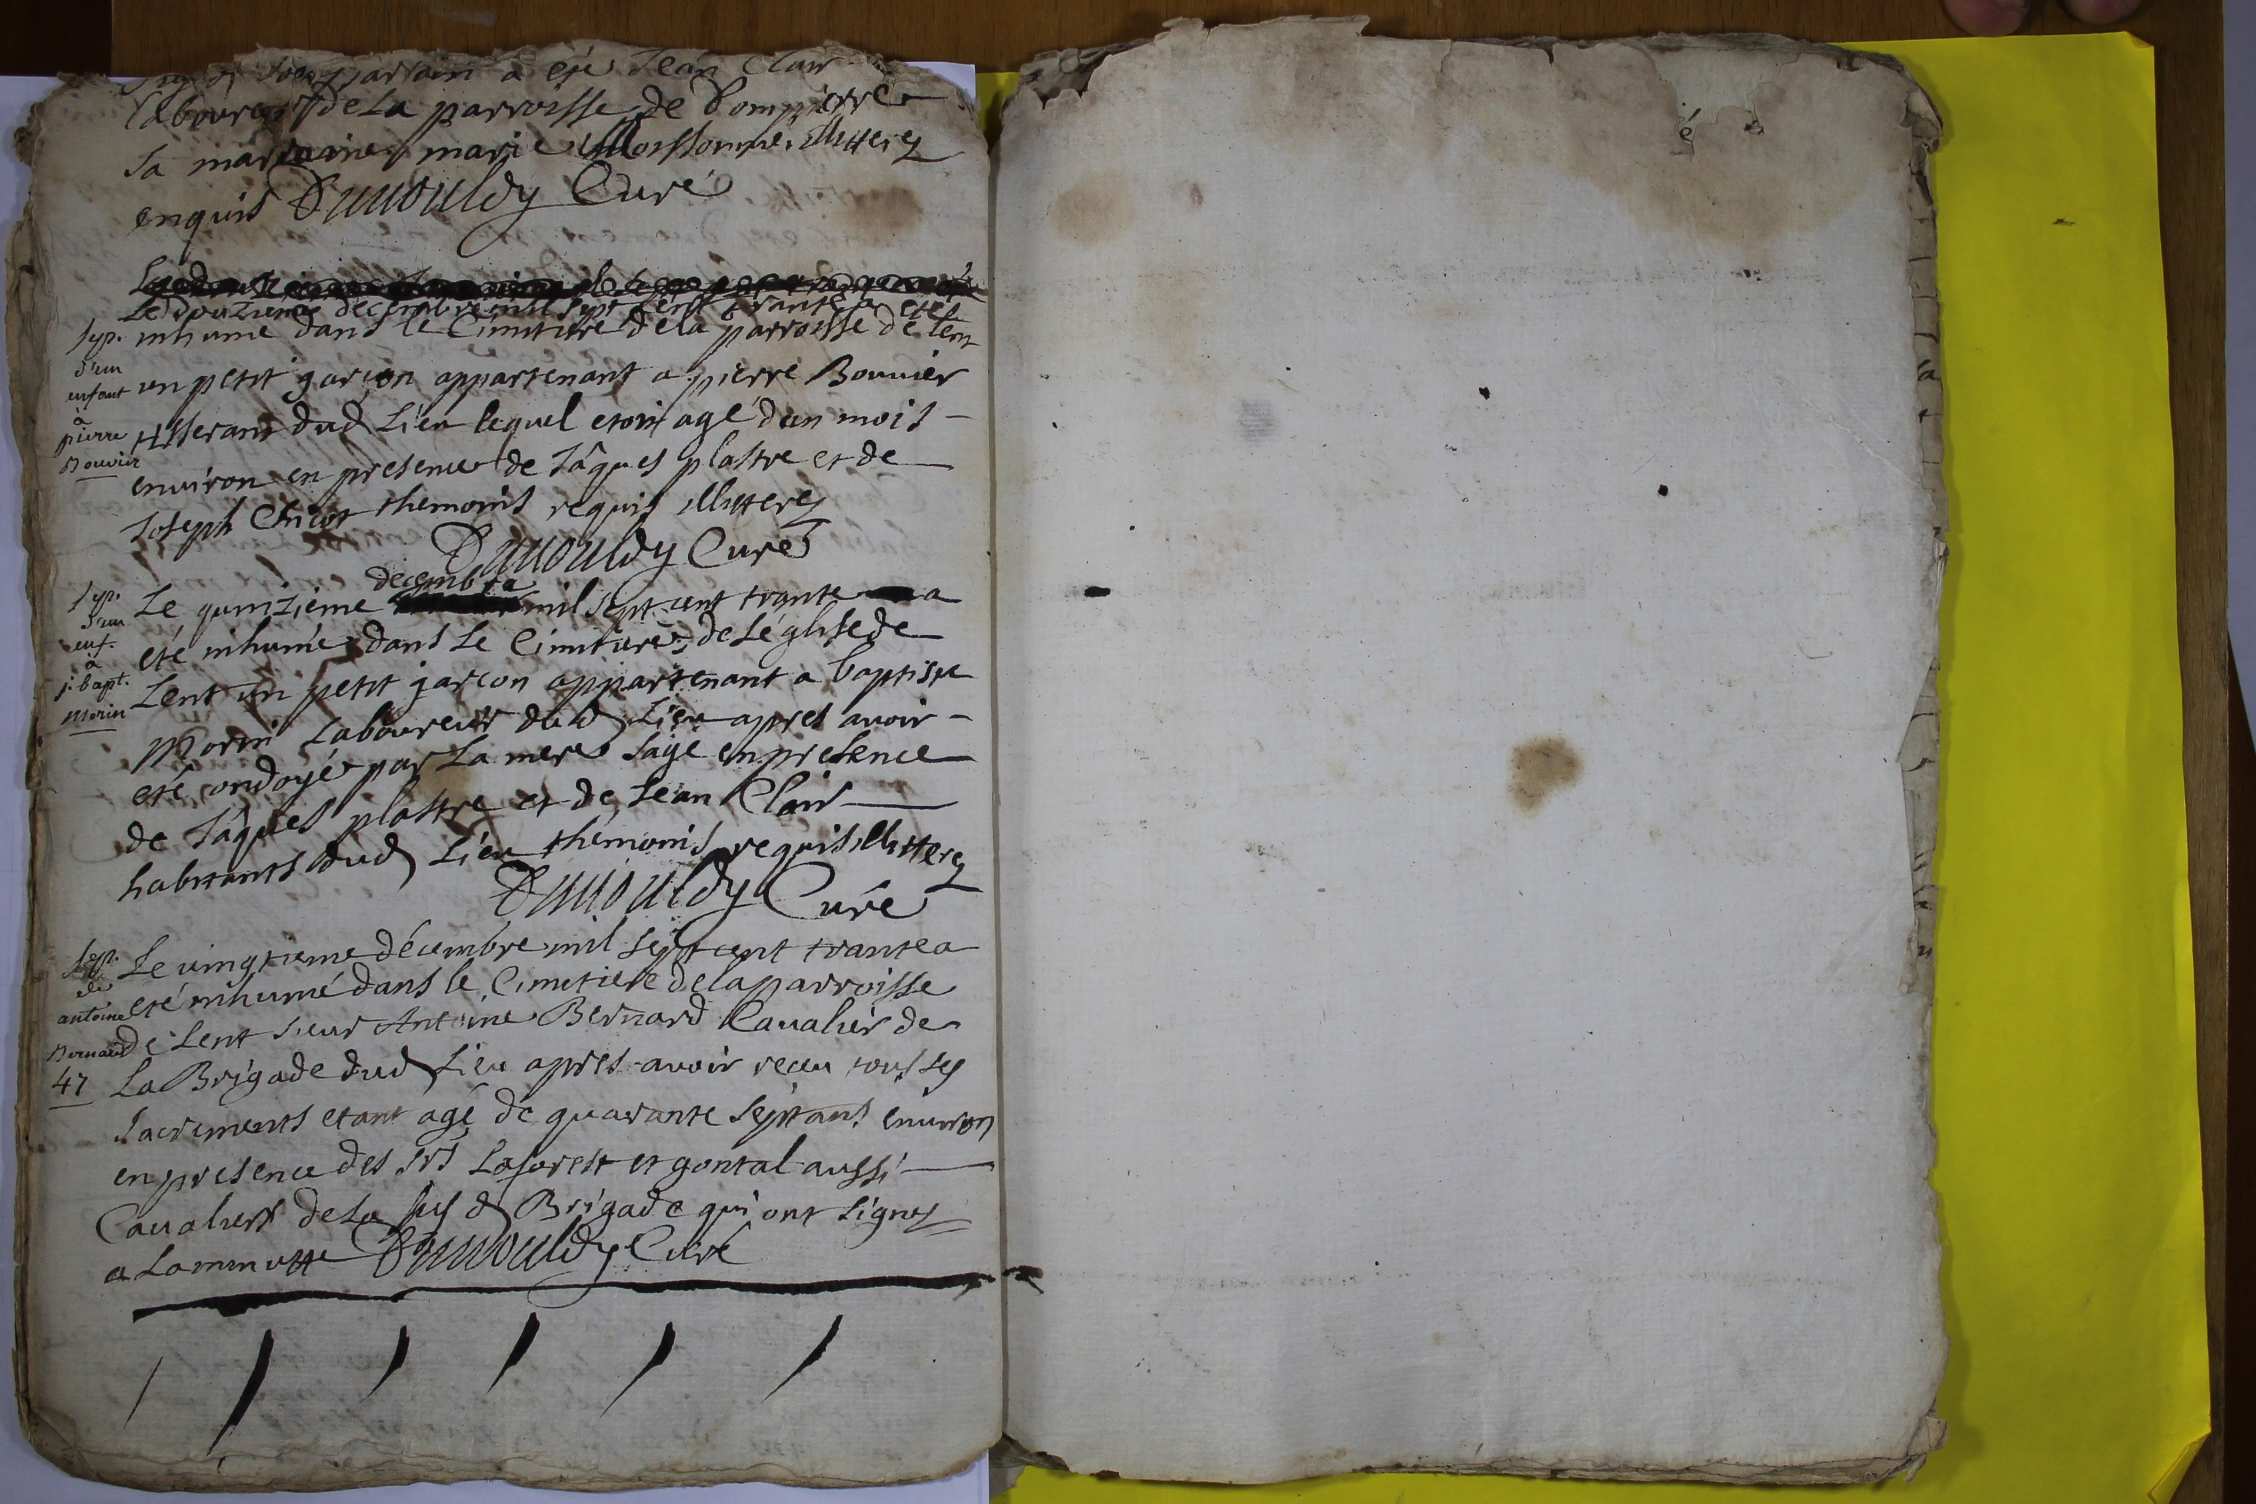 son parrain a eté Jean Clair
laboureur de la parroisse de Dompierre
sa marraine marie illitterez
enquis Curé
Le douzieme decembre mil sept cent trante a eté
inhumé dans le Cimitiere de la parroisse de lent
un petit garçon appartenant a pierre Bouvier
tisserant dud lieu lequel etoit agé d'un mois
environ en presence de Jâques plastre et de
Joseph Chicot themoins requis illitterez
Curé
Sep.
d'un
enfant
à
pierre
Bouvier
decembre
Le quinzieme mil sept cent trante a
eté inhumé dans le Cimitiere de l'églisede
Lent un petit garcon appartenant a baptiste
Morin laboureur dud lieu apres avoir
eté ondoyé par la mere sage en presence
de Jâques plastre et de Jean Clair
habitants dud lieu themoins requis illitterez
Curé
Sep.
d'un
enf.
à
j. bapt.
Morin
Le vingtieme décembre mil sept cent trante a
eté inhumé dans le Cimetiere de la parroisse
de Lent sieur Antoine Bernard Cavalier de
la Brigade dud lieu apres avoir receu tous ses
sacrements etant agé de quarante sept ans environ
en presence des srs Laforest et gontal aussi
Cavaliers de la sus d Brigade qui ont signez
a la minutte Curé
Sep.
de
antoine
Bernard
47
é